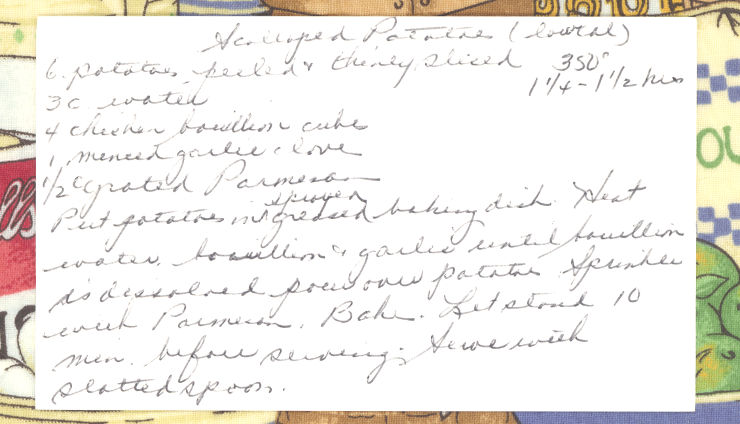 Scalloped Potatoes (lowcal)
6 potatoes, peeled & thinly sliced 350°
1 1/4 - 1 1/2 hrs
3 c. water
4 chicken bouillion cubes
1 minced garlic clove
1/2 c grated Parmesan
sprayed
Put potatoes in greased baking dish. Heat
water, bouillion & garlic until bouillion
is dissolved pour over potatoes. Sprinkle
with Parmesan. Bake. Let stand 10
min. before serving. Serve with
slotted spoon.